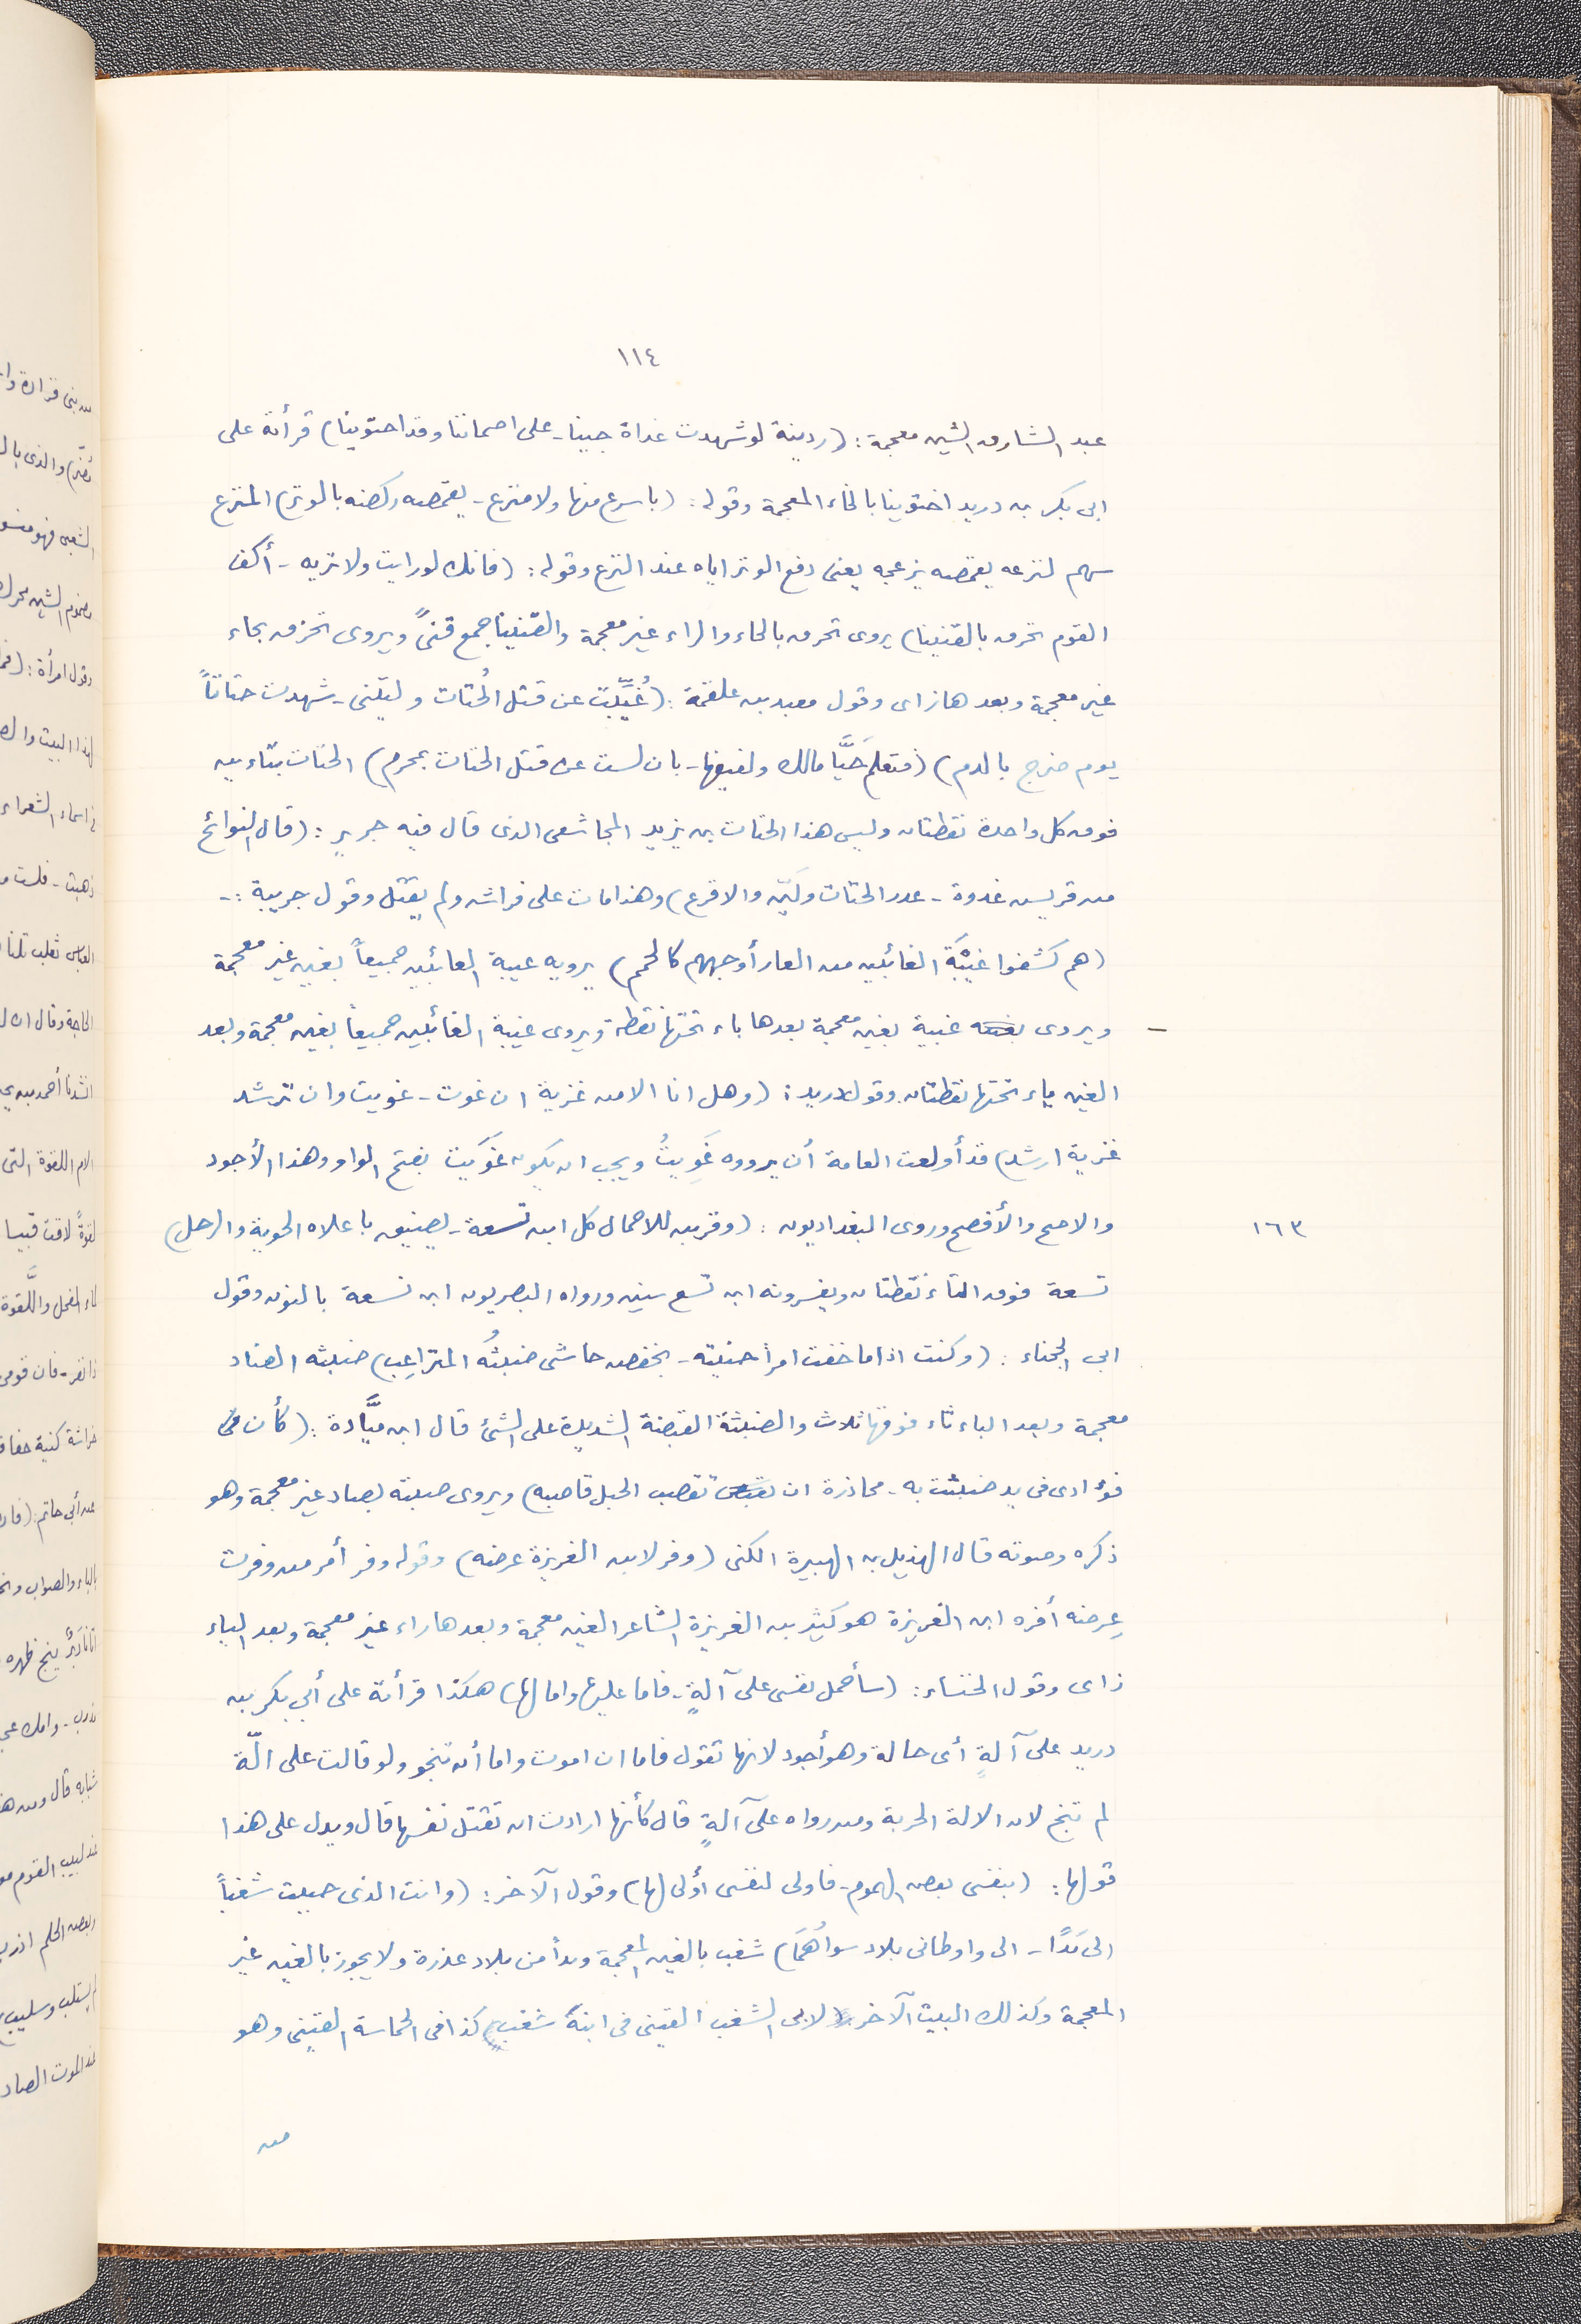 ١١٤
عبد الشارق الشين معجمة: (ردينة لو شهدت غداة جينا - على اضماتنا وقد احتوينا) قرأتة على
ابى بكر بن دريد اختوينا بالخاء المعجمة وقوله: (باسرع منها ولا منزع - يقمصه ركضه بالوتر) المنزع
سهم لنزعه يقمصه يزعجه يعنى دفع الوتر اياه عند النزع وقوله: (فانك لو رايت ولا تريه - أكف
القوم تخرق بالقنينا) يروى تحرق بالحاء والراء غير معجمة والقنينا جمع قنىً ويروى تحزق بحاء
غير معجمة وبعدها زاى وقول معبد بن علقمة: (غُيِّبْتُ عن قتل الحُتات وليتنى - شهدت حتاتاً
يوم ضرج بالدم) (فتعلمَ حَيَّا مالك ولفيفها - بان لست عن قتل الحتات بمحرم) الحتات بتاء ين
فوق كل واحدة نقطتان وليس هذا الحتات بن يزيد المجاشعى الذى قال فيه جرير: (قال لنوائح
من قريس غدوة - عدر الحتات ولَيّن والاقرع) وهذا مات على فراشه ولم يقتل وقول جريبة :-
(هم كشفوا غَيْبَة الغائبين من العار أوجههم كالحمم) يرويه عيبة العائبين جميعاً بعين غير معجمة
ويروى غيبة بغين معجمة بعدها باء تحتها نقطة ويروى غيبة الغائبين جميعاً بغين معجمة وبعد
الغين ياء تحتها نقطتان وقول دريد: (وهل انا الا من غزية ان غوت - غويت وان ترشد
غزية ارشد) قد أولعت العامة أن يرووه غَوِيتُ ويجب ان يكون غوَيت بفتح الواو وهذا الأجود
والاصح والأفصح وروى البغداديون: (وقربن للاحمال كل ابن تسعة - يضيق باعلاه الحوية والرحل)
١٦٣
تسعة فوق التاء نقطتان ويفسرونه ابن تسع سنين ورواه البصريون ابن نسعة بالنون وقول
ابى الحجناء: (وكنت اذا ما خفت امرأ جنيته - يخفض جاشى ضبثُه المتراعِب) ضبثه الضاد
معجمة وبعد الباء ثاء فوقها ثلاث والضبثة القبضة الشديدة على الشئ قال ابن ميَّادة: (كأن فى
فؤادى فى يد ضبثت به - محاذرة ان تقضب الحبل قاضبه) ويروى صيته بصاد غير معجمة وهو
ذكره وصوته قال الهذيل بن الهبيرة الكنى (وفر لابن الغريزة عرضه) وقوله وفر أمر من وفرت
عِرضه أفره ابن الغريزة هو كثير بن الغريزة الشاعر الغين معجمة وبعدها راء غير معجمة وبعد الياء
زاى وقول الخنساء: (سأحمل نفسى على آلةٍ - فاما عليها واما لها) هكذا قرأتة على أبى بكر بن
دريد على آلةٍ أى حالة وهو أجود لانها تقول فاما ان اموت واما أن تنجو ولو قالت على الّة
لم تنج لان الالة الحربة ومن رواه على آلةٍ قال كأنها ارادت ان تقتل نفسها قال ويدل على هذا
قولها: (بنفسى بعض الهموم - فاولى لنفسى أولى لها) وقول الآخر: (وانت الذى حببت شغباً
الى بَدًا - الى واوطانى بلاد سواهُمَا) شغب بالغين المعجمة وبدأ من بلاد عذرة ولا يجوز بالغين غير
المعجمة وكذلك البيت الآخر لابى الشغب القينى فى ابنة شغب كذا فى الحماسة القينى وهو
من